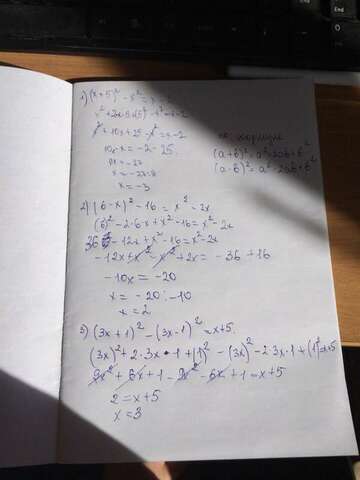 1) (x+5)² - x² = x-2
x² + 2x·5+(5)² - x² = x-2
x² + 10x + 25 - x² = x-2
10x-x = -2-25
9x = -27
x = -27:9
x = -3
(a+b)² = a² + 2ab + b²
(a-b)² = a² - 2ab + b²
2) (6-x)² - 16 = x² - 2x
(6)² - 2·6·x + x² - 16 = x² - 2x
36 - 12x + x² - 16 = x² - 2x
-12x + x² - x² + 2x = -36 + 16
-10x = -20
x = -20:-10
x = 2
3) (3x+1)² - (3x-1)² = x+5.
(3x)² + 2·3x·1 + (1)² - (3x)² - 2·3x·1 + (1)² = x+5
9x² + 6x + 1 - 9x² - 6x + 1 = x+5
2 = x+5
x = 3